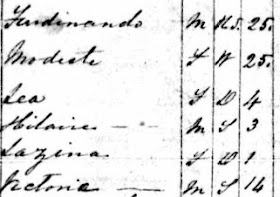 Ferdinando M H.d. 25.
Modeste F W 25.
Lea F D 4
Hilaire — — M S 3
Lazina F D 1
Victoria — M S 14